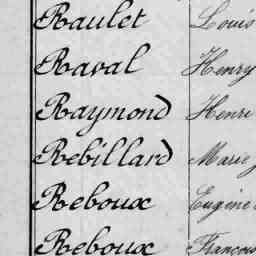 Raulet Louis
Raval Henry
Raymond Henri
Rebillard Marie
Reboux Eugène
Reboux François